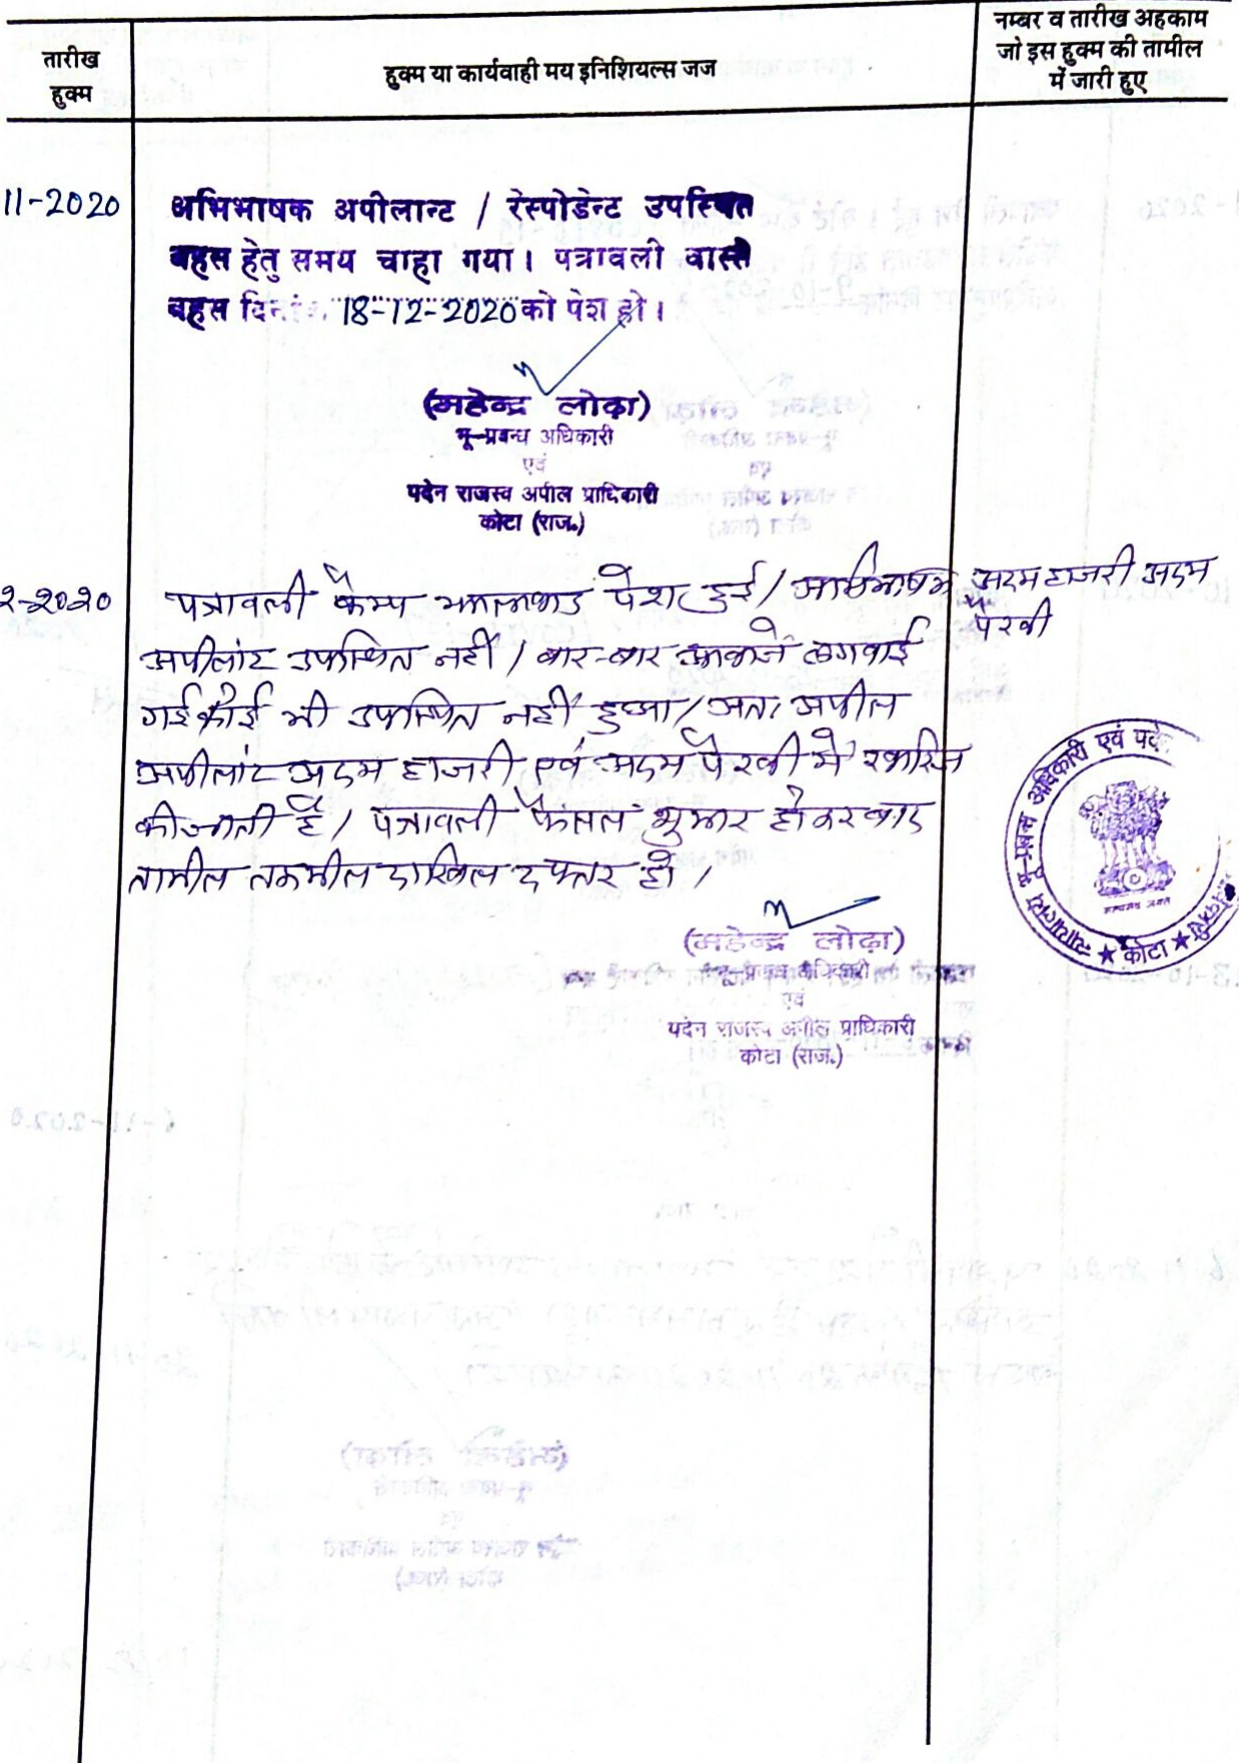 तारीख
हुक्म
हुक्म या कार्यवाही मय इनिशियल्स जज
नम्बर व तारीख अहकाम
जो इस हुक्म की तामील
में जारी हुए
11-2020
अभिभाषक अपीलान्ट / रेस्पोडेन्ट उपस्थित
बहस हेतु समय चाहा गया। पत्रावली वास्ते
बहस दिनांक 18-12-2020 को पेश हो।
(महेन्द्र लोढ़ा)
भू-प्रबन्ध अधिकारी
एवं
पदेन राजस्व अपील प्राधिकारी
कोटा (राज.)
2-2020
पत्रावली कैम्प झालावाड पेश हुई / अभिभाषक
अपीलांट उपस्थित नहीं / बार-बार आवाजें लगवाई
गई कोई भी उपस्थित नहीं हुआ / अतः अपील
अपीलांट अदम हाजरी एवं अदम पैरवी में खारिज
की जाती है / पत्रावली फैसल शुमार होकर बाद
तामील तकमील दाखिल दफ्तर हो /
अदम हाजरी अदम
पैरवी
(महेन्द्र लोढ़ा)
भू-प्रबन्ध अधिकारी
एवं
पदेन राजस्व अपील प्राधिकारी
कोटा (राज.)
न्यायालय भू-प्रबन्ध अधिकारी एवं पदेन
★ कोटा ★